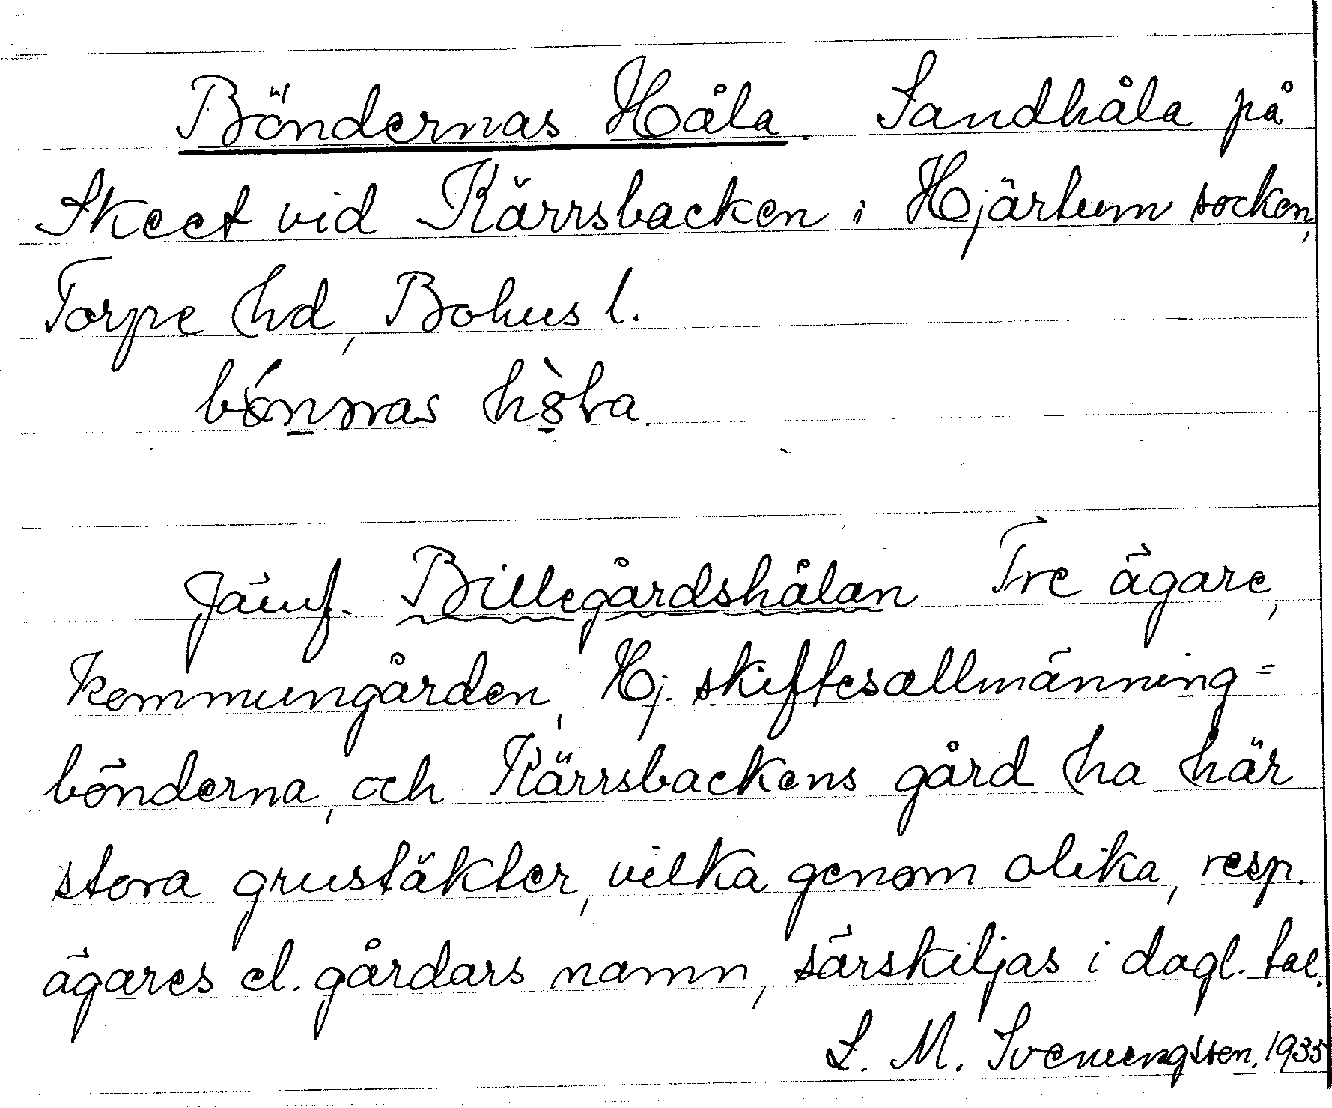 Böndernas Håla. Sandhåla på
Skeet vid Kärrsbacken i Hjärtum socken,
Torpe hd, Bohus l.
Jämf. Billegårdshålan Tre ägare,
Kommungården, Hj. skiftesallmänning=
bönderna, och Kärrsbackens gård ha här
stora grustäkter, vilka genom olika, resp.
ägares el. gårdars namn, särskiljas i dagl. tal.
S. M. Svenungsson. 1935